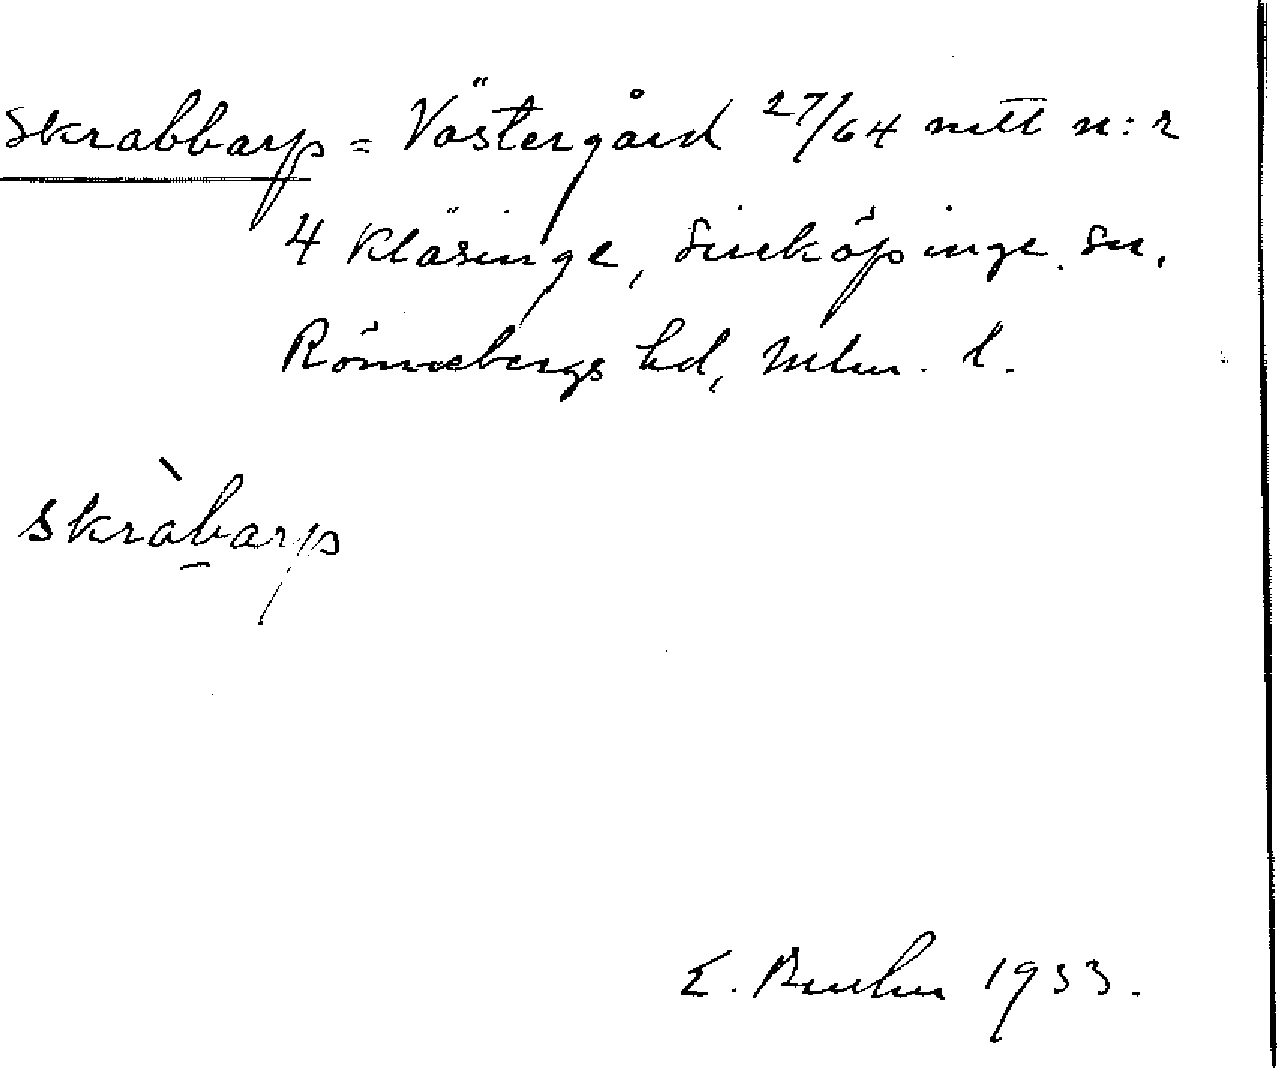 Skrabbarp = Västergård 27/64 mtl n:r
4 Kläsinge, Sireköpinge sn.
Rönnebergs hd, Mlm. l.
skràbarp
E. Bruhn 1933.